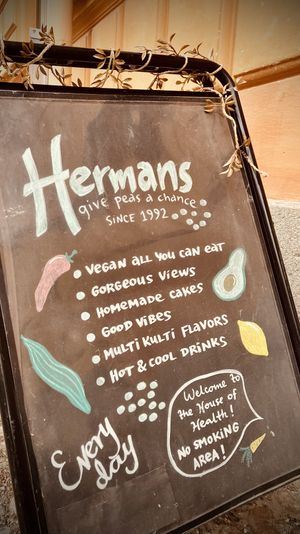 Hermans
give peas a chance
SINCE 1992
• VEGAN ALL YOU CAN EAT
• GORGEOUS VIEWS
• HOMEMADE CAKES
• GOOD VIBES
• MULTI KULTI FLAVORS
• HOT & COOL DRINKS
Every
day
Welcome to
the House of
Health!
NO SMOKING
AREA!